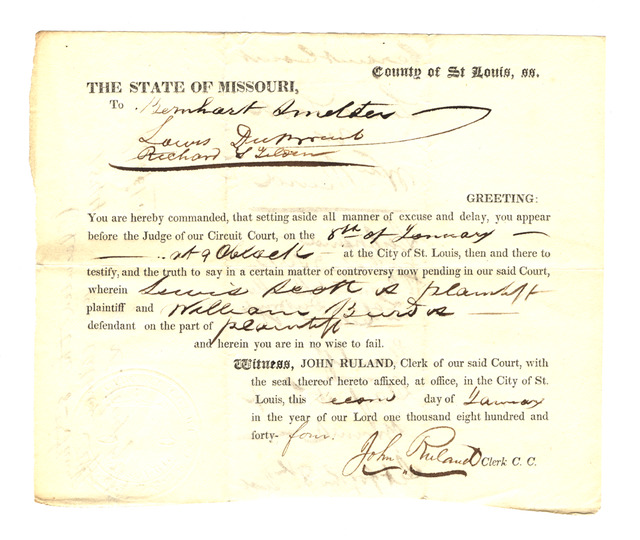 County of St Louis, ss.
THE STATE OF MISSOURI,
To Bernhart Smelter
Louis
Richard S Tilden
GREETING:
You are hereby commanded, that setting aside all manner of excuse and delay, you appear
before the Judge of our Circuit Court, on the 8th of January
at 9 Oclock at the City of St. Louis, then and there to
testify, and the truth to say in a certain matter of controversy now pending in our said Court,
wherein Lewis Scott is plaintiff
plaintiff and William Burd is
defendant on the part of plaintiff
and herein you are in no wise to fail.
Witness, JOHN RULAND, Clerk of our said Court, with
the seal thereof hereto affixed, at office, in the City of St.
Louis, this Second day of January
in the year of our Lord one thousand eight hundred and
forty-four.
John Ruland Clerk C. C.